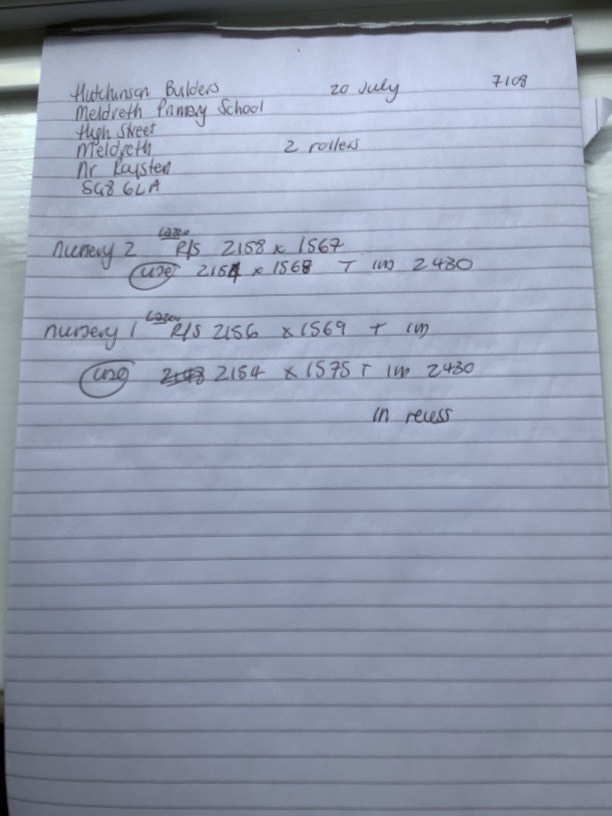 Hutchinson Builders 20 July 7108
Meldreth Primary School
High Street
Meldreth 2 rollers
Nr Royston
SG8 6LA
nursery 2 R/S 2158 x 1567
use 2154 x 1568 T IW 2430
nursery 1 R/S 2156 x 1569 T IW
use 2154 x 1575 T IW 2430
In recess